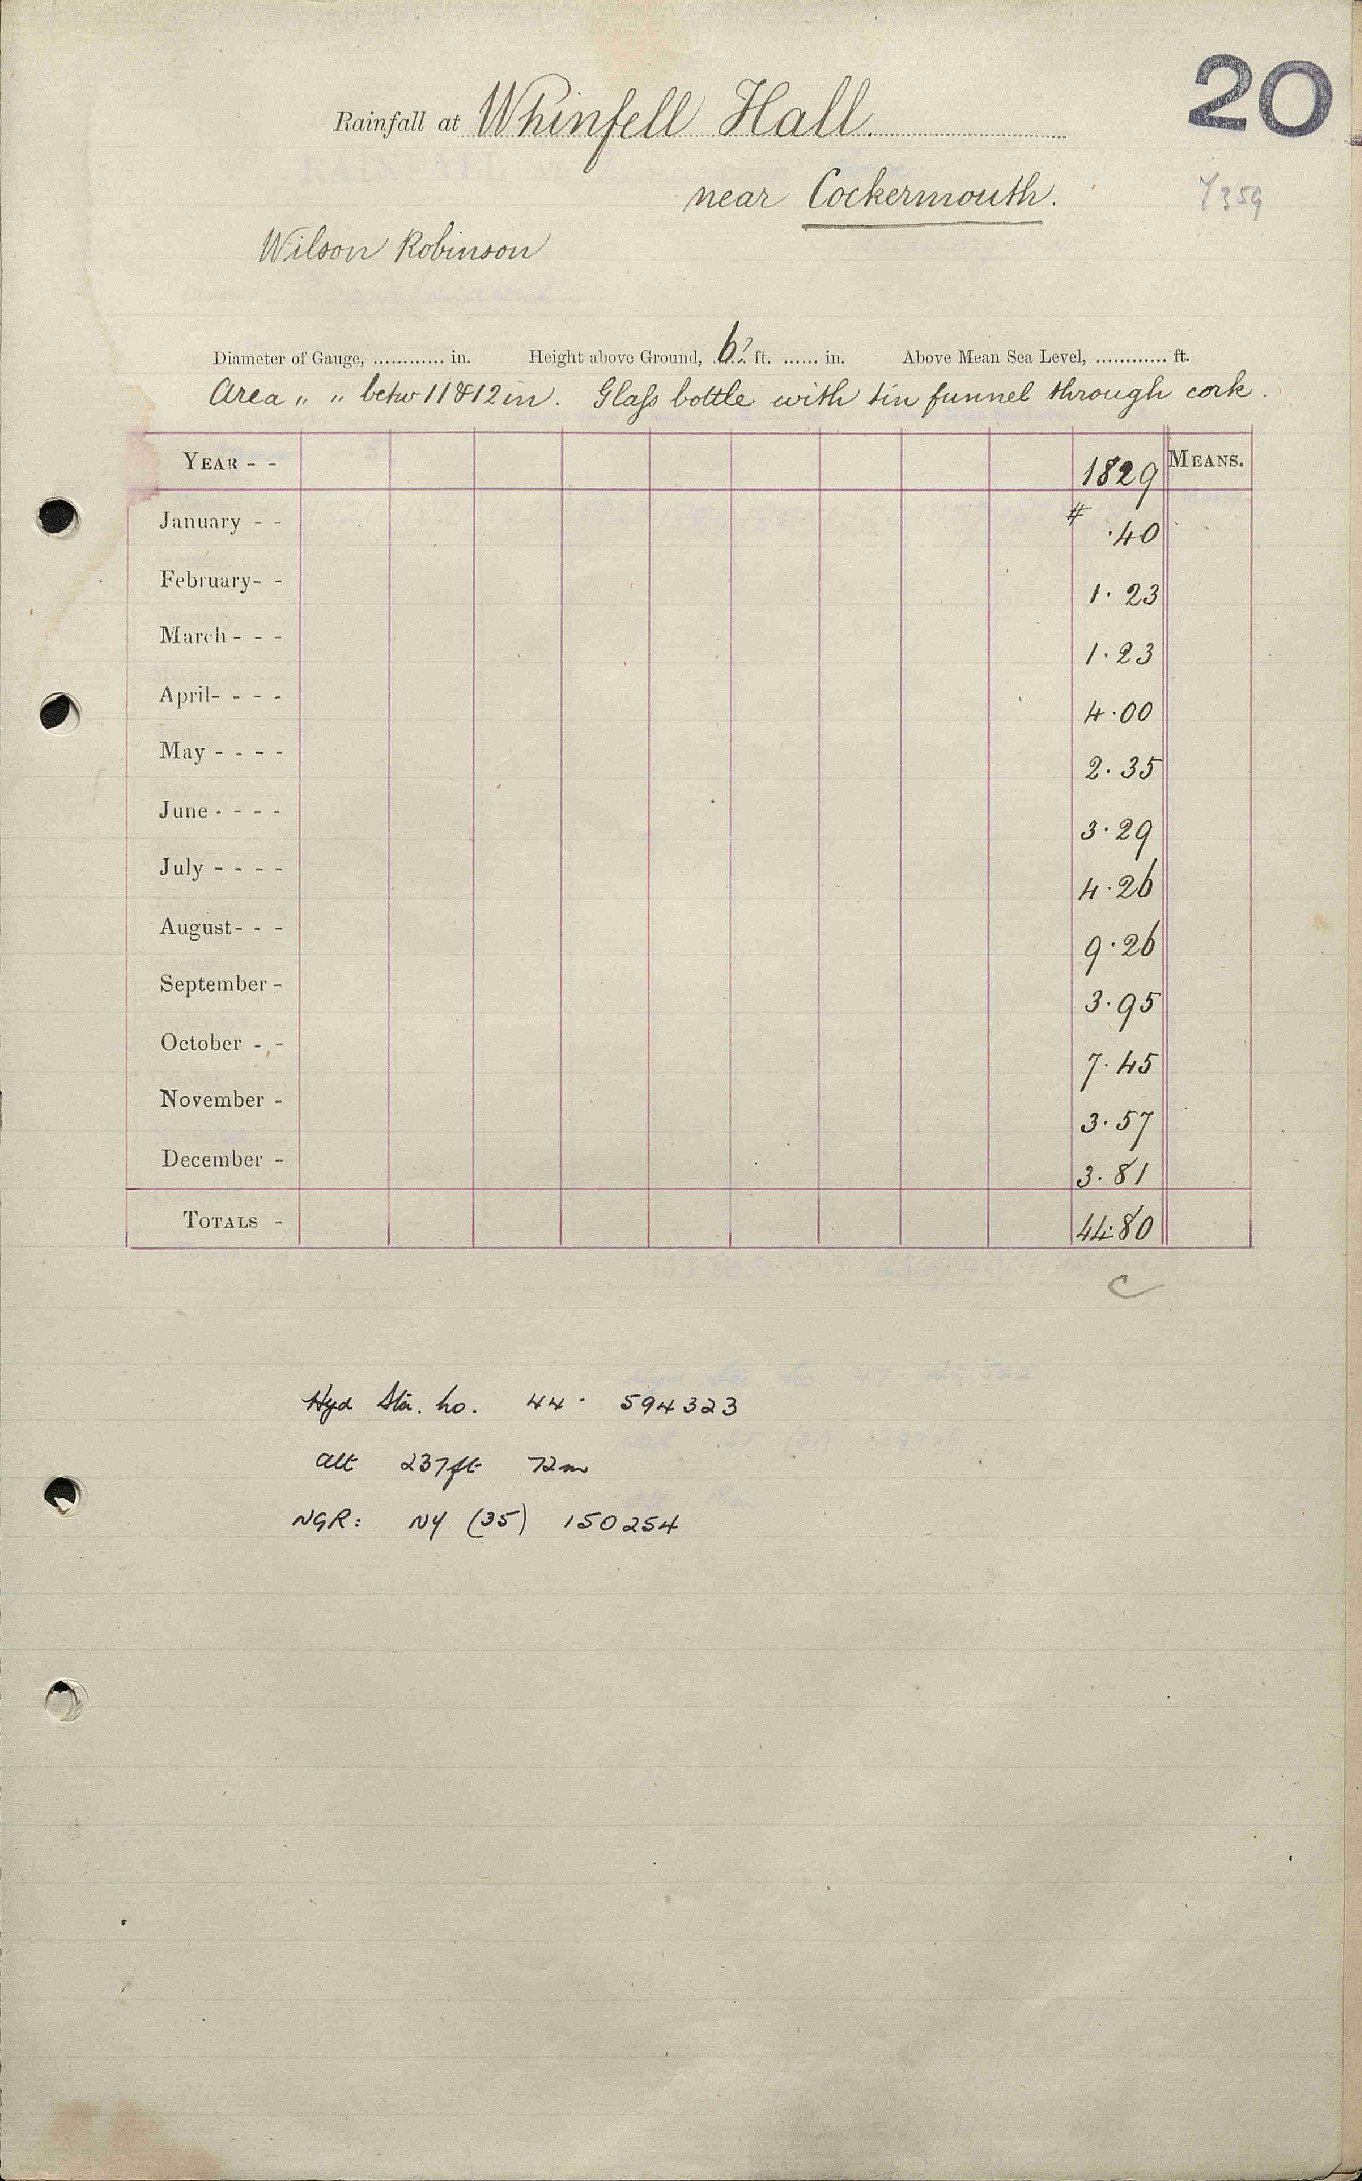 20
Rainfall at Whinfell Hall.
near Cockermouth.
7359
Wilson Robinson
Diameter of Gauge, ............ in. Height above Ground, 6? ft. ...... in. Above Mean Sea Level, ............ ft.
Area " " betw 11 & 12 in. Glass bottle with tin funnel through cork.
YEAR - - 1829 MEANS.
January - - # .40
February - - 1.23
March - - - 1.23
April - - - - 4.00
May - - - - 2.35
June - - - - 3.29
July - - - - 4.26
August - - - 9.26
September - 3.95
October - - 7.45
November - 3.57
December - 3.81
TOTALS - 44.80
C
Hyd Stn. no. 44. 594323
alt 237ft 72m
NGR: NY (35) 150254